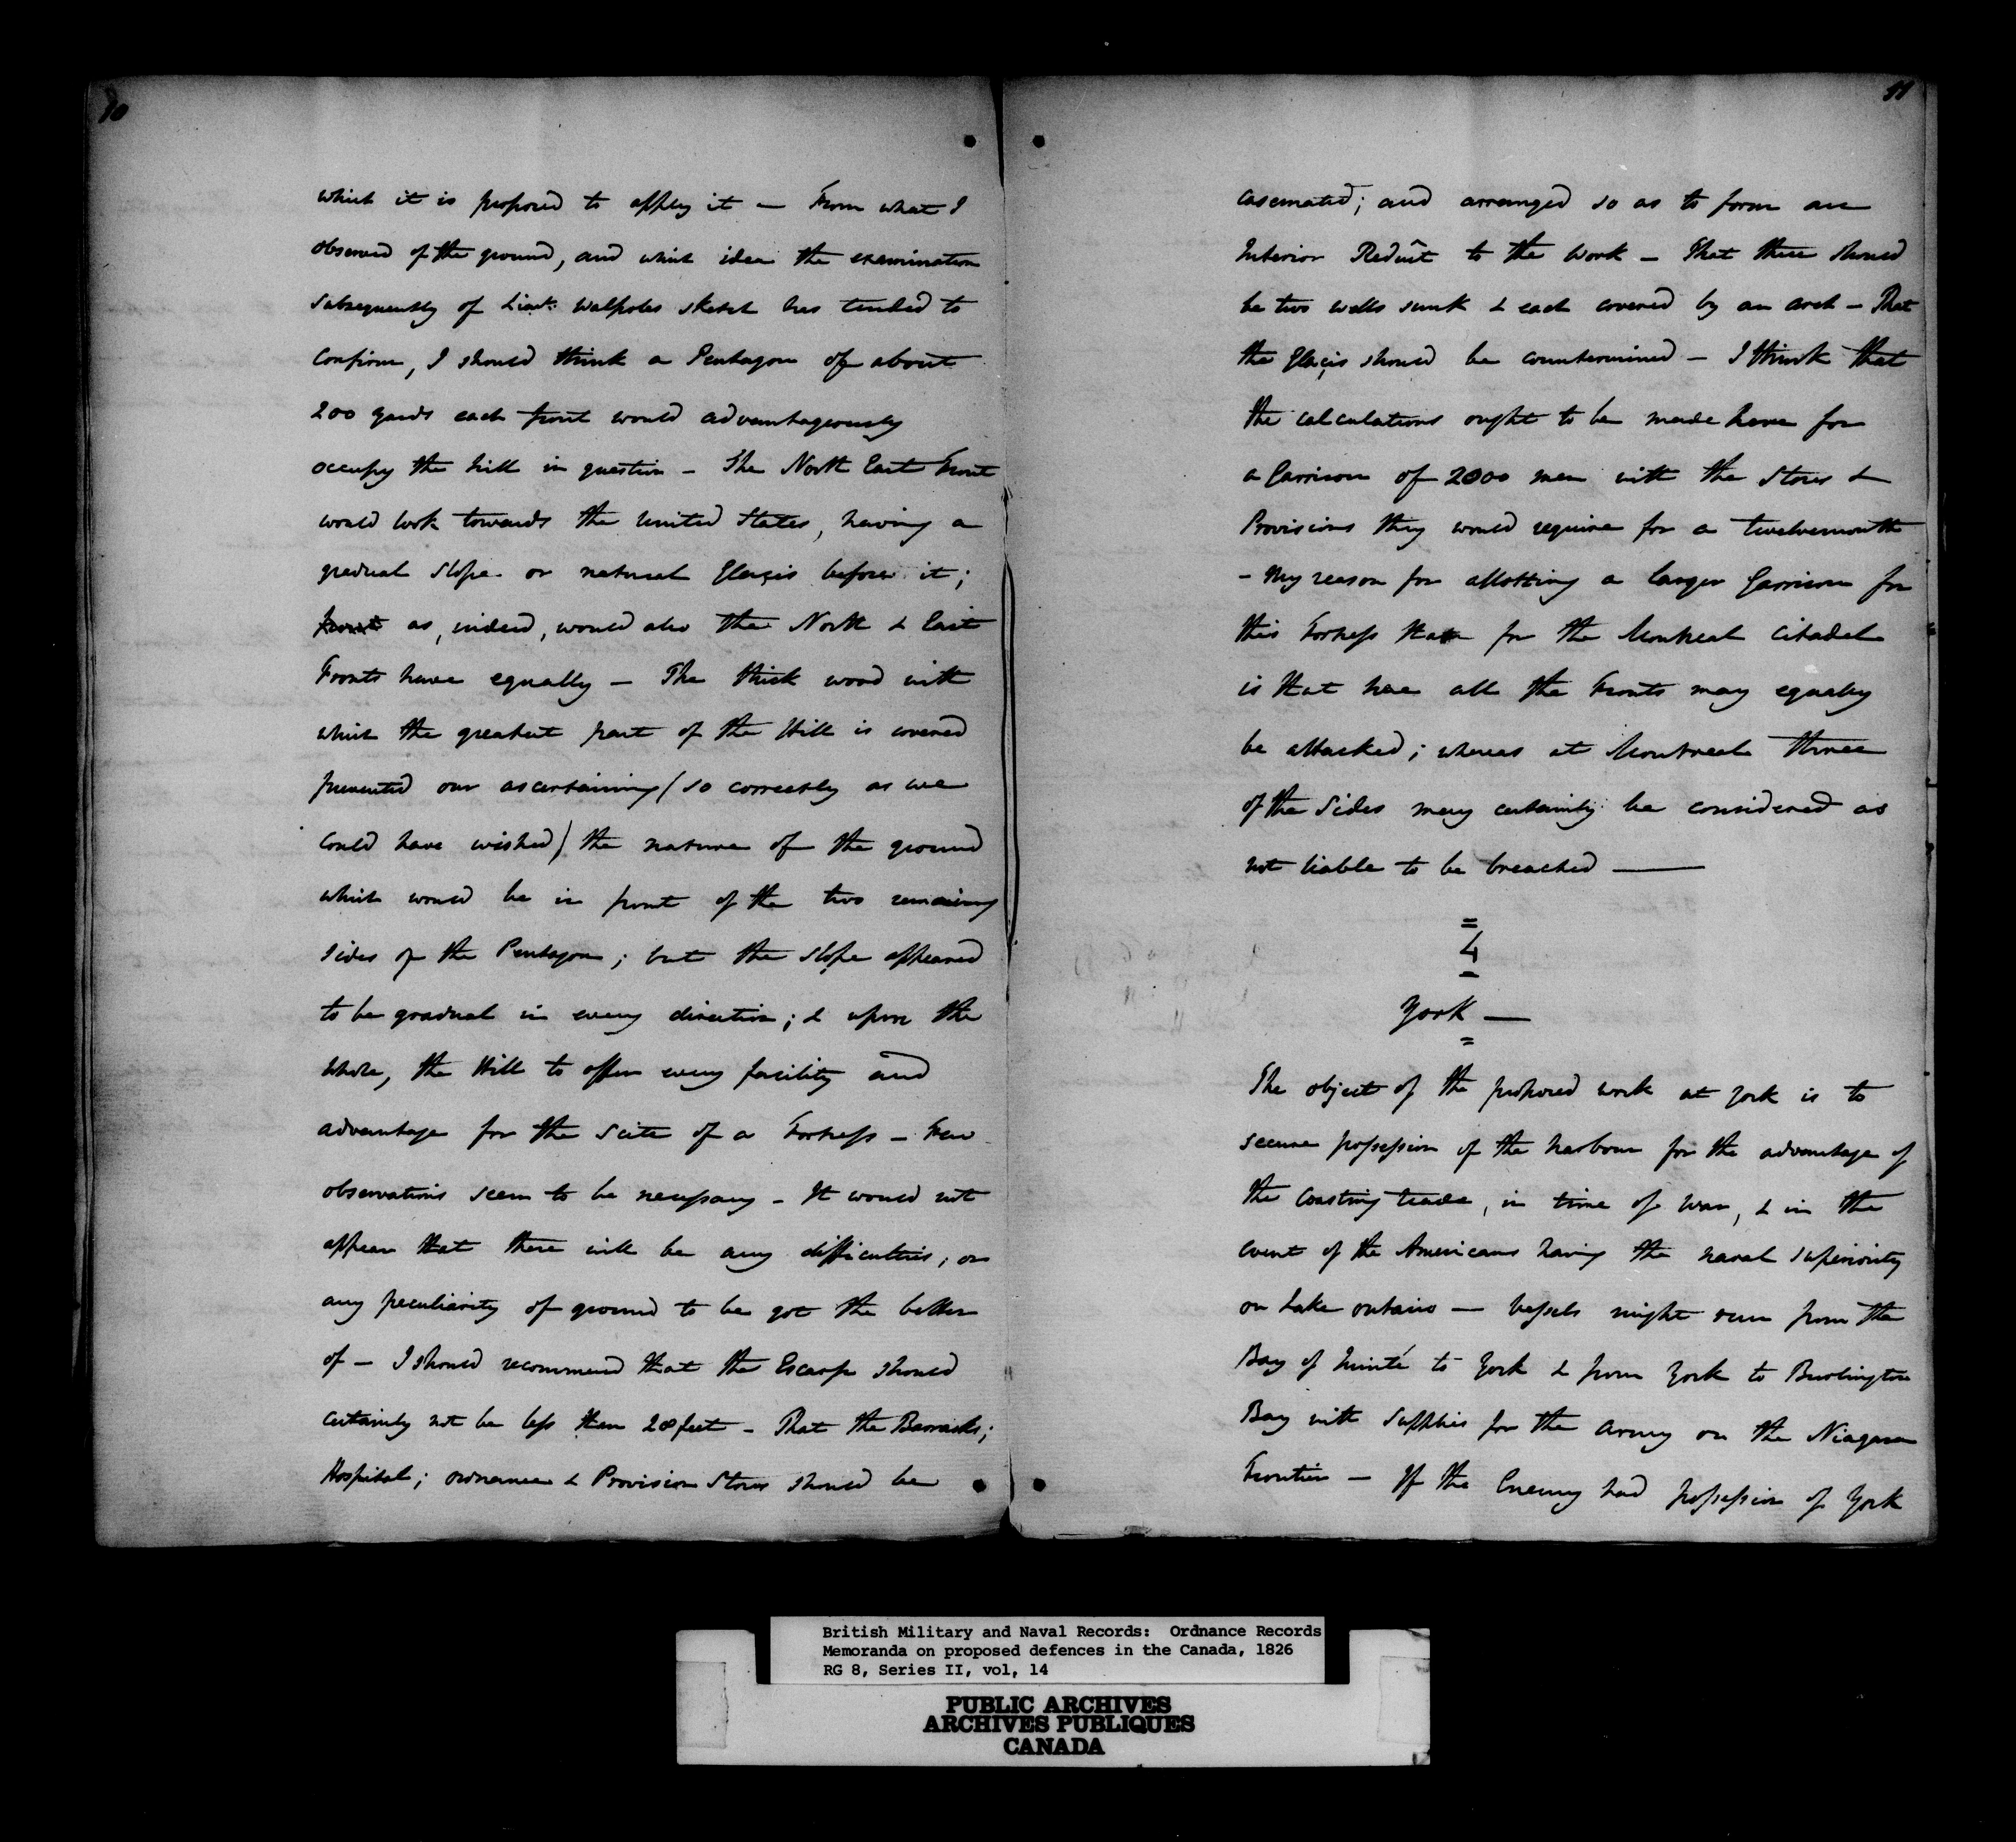 10
which it is proposed to apply it — From what I
observed of the ground, and which idea the examination
subsequently of Lieut: Walpoles sketch has tended to
confirm, I should think a Pentagon of about
200 yards each front would advantageously
occupy the hill in question — The North East Front
would look towards the United States, having a
gradual slope or natural Glaçis before it;
front as, indeed, would also the North & East
Fronts have equally — The thick wood with
which the greatest part of the Hill is covered
prevented our ascertaining (so correctly as we
could have wished) the nature of the ground
which would be in front of the two remaining
sides of the Pentagon; but the slope appeared
to be gradual in every direction; & upon the
whole, the Hill to offer every facility and
advantage for the scite of a Fortress — Few
observations seem to be necessary — It would not
appear that there will be any difficulties, or
any peculiarity of ground to be got the better
of — I should recommend that the Escarp should
certainly not be less than 28 feet — That the Barracks;
Hospital; Ordnance & Provision Stores should be
11
casemated; and arranged so as to form an
Interior Reduît to the Work — That there should
be two wells sunk & each covered by an arch — That
the Glaçis should be countermined — I think that
the calculations ought to be made here for
a Garrison of 2000 men with the Stores &
Provisions they would require for a twelvemonth
— My reason for allotting a larger Garrison for
this Fortress than for the Montreal Citadel
is that here all the Fronts may equally
be attacked; whereas at Montreal three
of the sides may certainly be considered as
not liable to be breached —
4
York —
The object of the proposed work at York is to
secure possession of the harbour for the advantage of
the coasting trade, in time of War, & in the
event of the Americans having the naval superiority
on Lake Ontario — Vessels might run from the
Bay of Quinté to York & from York to Burlington
Bay with supplies for the Army on the Niagara
Frontier — If the Enemy had possession of York
British Military and Naval Records: Ordnance Records
Memoranda on proposed defences in the Canada, 1826
RG 8, Series II, vol, 14
PUBLIC ARCHIVES
ARCHIVES PUBLIQUES
CANADA